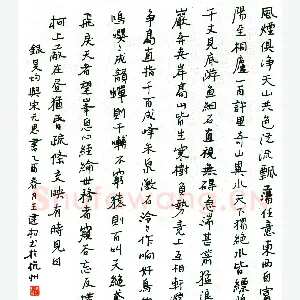 風煙俱淨天山共色從流飄蕩任意東西自富
陽至桐廬一百許里奇山異水天下獨絕水皆縹碧
千丈見底游魚細石直視無礙急湍甚箭猛浪
奔夾岸高山皆生寒樹負勢競上互相軒邈
爭高直指千百成峰泉激石泠泠作響好鳥相
鳴嚶嚶成韻蟬則千囀不窮猿則百叫無絕鳶
飛戾天者望峰息心經綸世務者窺谷忘反橫
柯上蔽在晝猶昏疏條交映有時見日
錄吳均與宋元思書乙酉春月王建於杭州